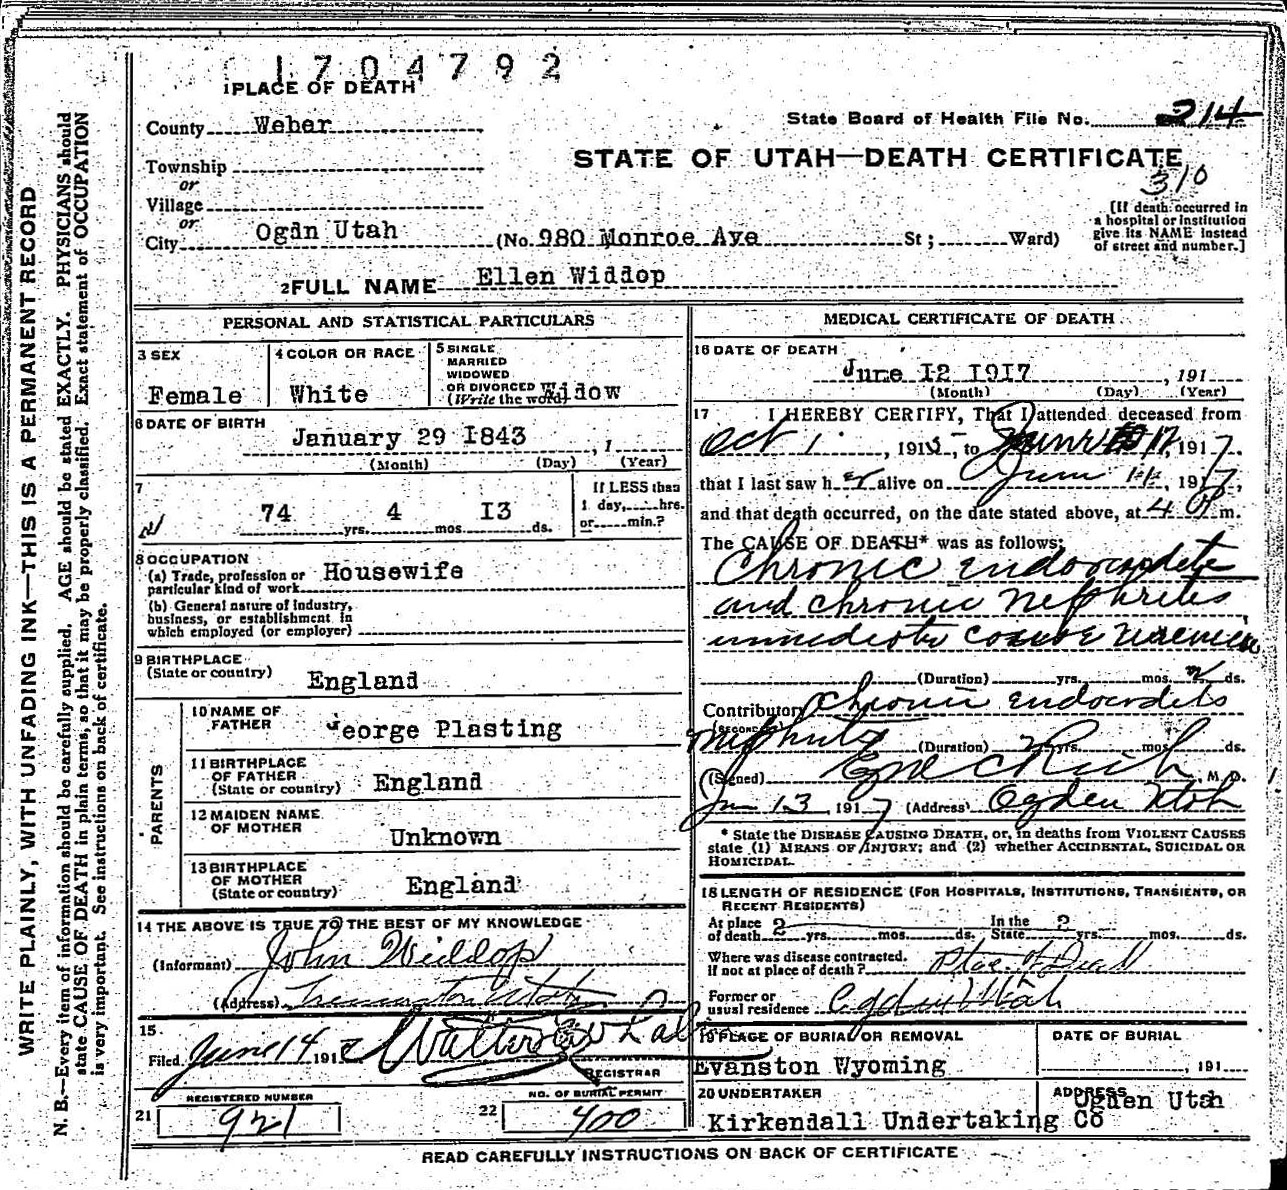 1704792
1 PLACE OF DEATH
County Weber
State Board of Health File No. 214
STATE OF UTAH—DEATH CERTIFICATE
310
Township
or
Village
or
City Ogdn Utah (No. 980 Monroe Ave St; Ward)
[If death occurred in
a hospital or institution
give its NAME instead
of street and number.]
2 FULL NAME Ellen Widdop
PERSONAL AND STATISTICAL PARTICULARS
3 SEX
Female
4 COLOR OR RACE
White
5 SINGLE
MARRIED
WIDOWED
OR DIVORCED
(Write the word) Widow
6 DATE OF BIRTH
January 29 I843 , 1
(Month) (Day) (Year)
7
74 yrs. 4 mos. I3 ds.
If LESS than
1 day, hrs.
or min.?
8 OCCUPATION
(a) Trade, profession or
particular kind of work Housewife
(b) General nature of industry,
business, or establishment in
which employed (or employer)
9 BIRTHPLACE
(State or country) England
PARENTS
10 NAME OF
FATHER George Plasting
11 BIRTHPLACE
OF FATHER
(State or country) England
12 MAIDEN NAME
OF MOTHER Unknown
13 BIRTHPLACE
OF MOTHER
(State or country) England
14 THE ABOVE IS TRUE TO THE BEST OF MY KNOWLEDGE
(Informant) John Widdop
(Address) Tremonton Utah
15
Filed June 14 191
REGISTRAR
REGISTERED NUMBER
21 921
NO. OF BURIAL PERMIT
22 400
MEDICAL CERTIFICATE OF DEATH
16 DATE OF DEATH
June I2 I9I7 , 191
(Month) (Day) (Year)
17 I HEREBY CERTIFY, That I attended deceased from
Oct 1 , 1915 to June 12, 1917
that I last saw her alive on June 11, 1917,
and that death occurred, on the date stated above, at 4 P m.
The CAUSE OF DEATH* was as follows:
Chronic endocardits
and chronic nephrites
immediate cause uremia
(Duration) yrs. mos. ds.
Contributory Chronic endocardits
(SECONDARY)
nephritis (Duration) yrs. mos. ds.
(Signed) Rich, M. D.
Jun 13, 1917 (Address) Ogden Utah
* State the DISEASE CAUSING DEATH, or, in deaths from VIOLENT CAUSES
state (1) MEANS OF INJURY; and (2) whether ACCIDENTAL, SUICIDAL OR
HOMICIDAL.
18 LENGTH OF RESIDENCE (FOR HOSPITALS, INSTITUTIONS, TRANSIENTS, OR
RECENT RESIDENTS)
At place
of death 2 yrs. mos. ds. In the
State 2 yrs. mos. ds.
Where was disease contracted.
if not at place of death? Place of Death
Former or
usual residence Ogden Utah
19 PLACE OF BURIAL OR REMOVAL
Evanston Wyoming
DATE OF BURIAL
, 191
20 UNDERTAKER
Kirkendall Undertaking Co
ADDRESS
Ogden Utah
READ CAREFULLY INSTRUCTIONS ON BACK OF CERTIFICATE
WRITE PLAINLY, WITH UNFADING INK—THIS IS A PERMANENT RECORD
N. B.—Every item of information should be carefully supplied. AGE should be stated EXACTLY. PHYSICIANS should
state CAUSE OF DEATH in plain terms, so that it may be properly classified. Exact statement of OCCUPATION
is very important. See instructions on back of certificate.